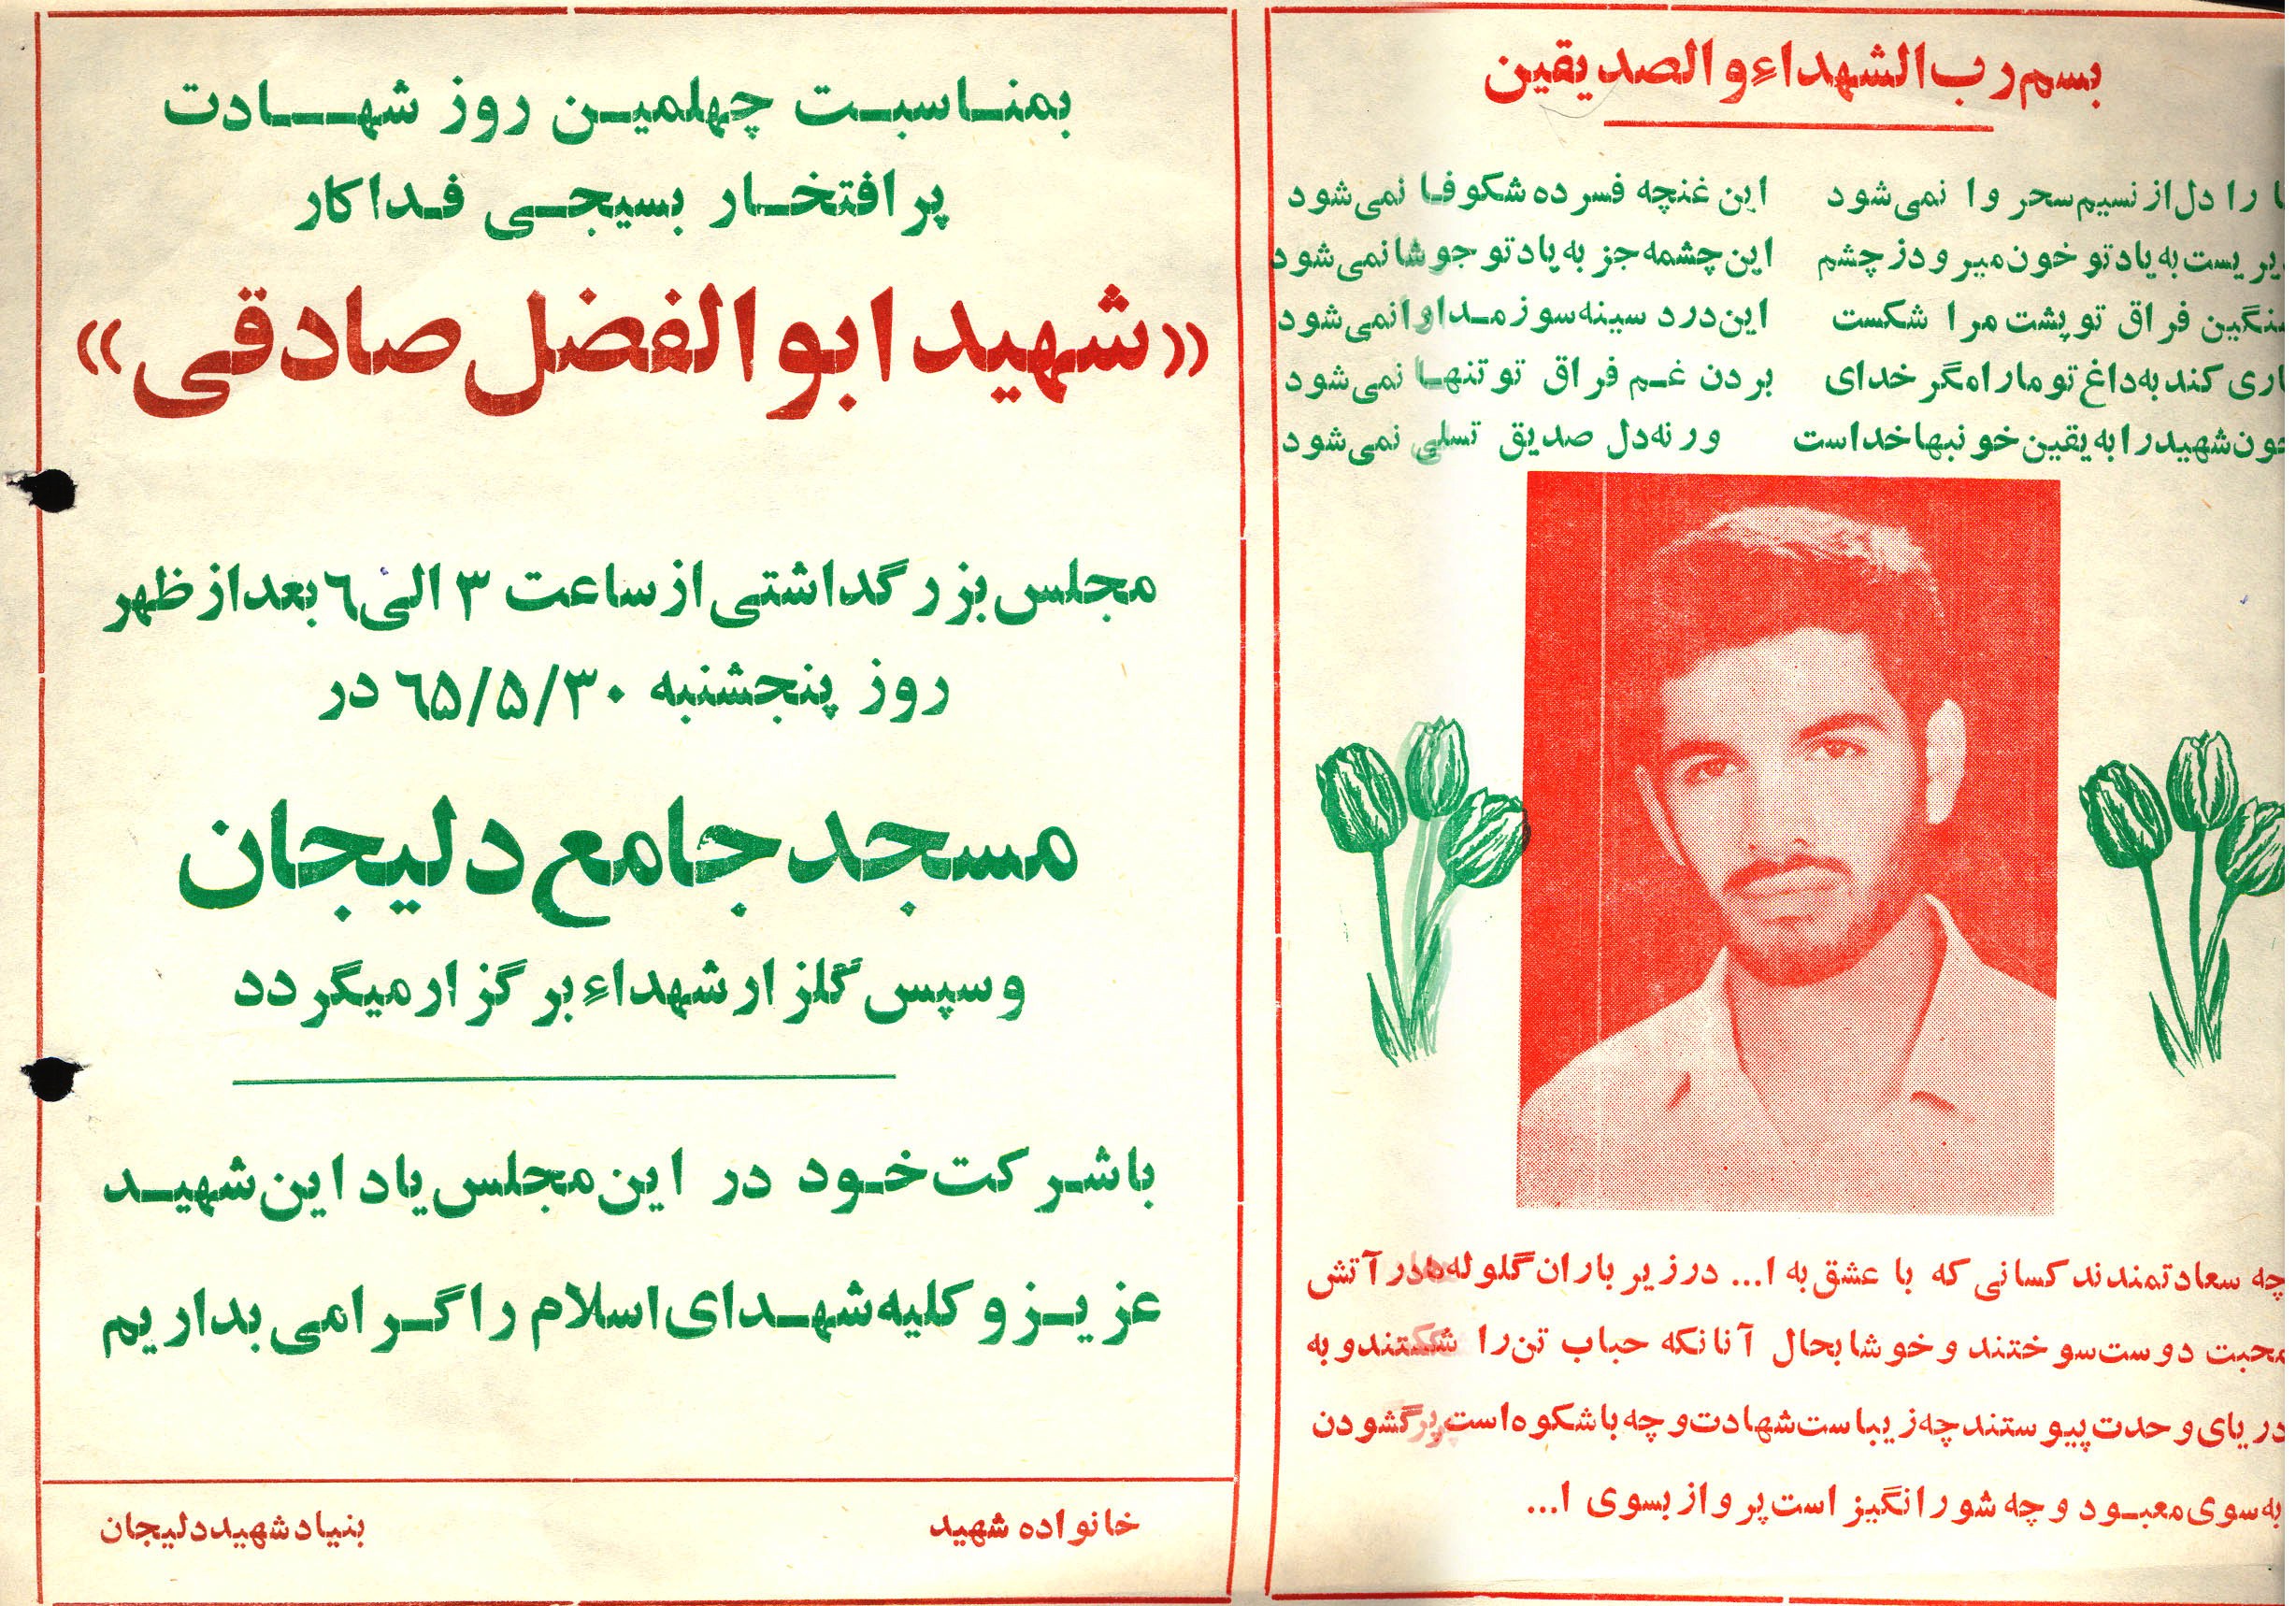 بسم رب الشهداء و الصدیقین
را دل از نسیم سحر وا نمی‌شود این غنچه فسرده شکوفا نمی‌شود
یریست به یاد تو خون میرود ز چشم این چشمه جز به یاد تو جوشا نمی‌شود
سنگین فراق تو پشت مرا شکست این درد سینه سوز مداوا نمی‌شود
اری کند به داغ تو ما را مگر خدای بردن غم فراق تو تنها نمی‌شود
خون شهید را به یقین خونبها خداست ورنه دل صدیق تسلی نمی‌شود
چه سعادتمندند کسانی که با عشق به ا... در زیر باران گلوله‌ها در آتش
محبت دوست سوختند و خوشا بحال آنانکه حباب تن را شکستند و به
دریای وحدت پیوستند چه زیباست شهادت و چه باشکوه است پر گشودن
به سوی معبود و چه شورانگیز است پرواز بسوی ا...
بمناسبت چهلمین روز شهادت
پر افتخار بسیجی فداکار
«شهید ابوالفضل صادقی»
مجلس بزرگداشتی از ساعت ۳ الی ۶ بعد از ظهر
روز پنجشنبه ۶۵/۵/۳۰ در
مسجد جامع دلیجان
و سپس گلزار شهداء برگزار میگردد
با شرکت خود در این مجلس یاد این شهید
عزیز و کلیه شهدای اسلام را گرامی بداریم
خانواده شهید بنیاد شهید دلیجان